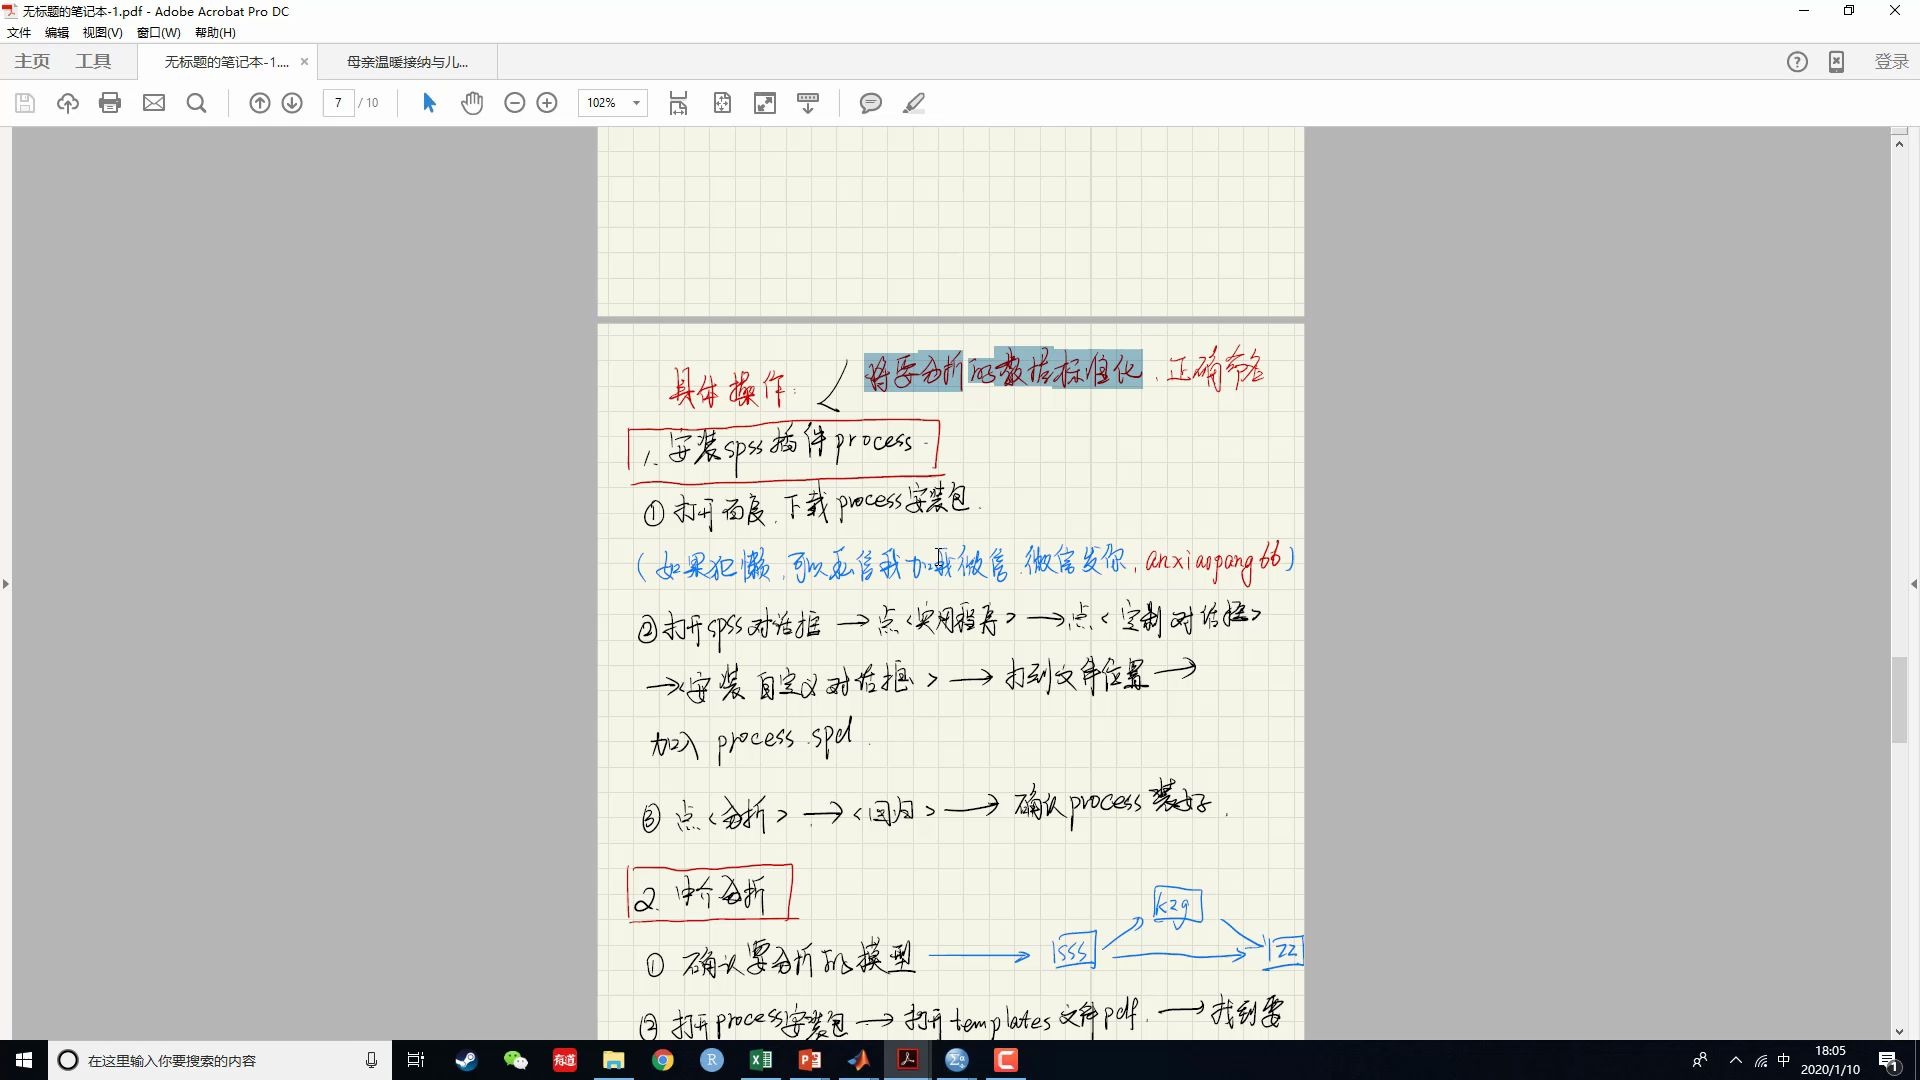 无标题的笔记本-1.pdf - Adobe Acrobat Pro DC
文件 编辑 视图(V) 窗口(W) 帮助(H)
主页 工具 无标题的笔记本-1.... × 母亲温暖接纳与儿... 登录
7 / 10 102%
具体操作: < 将要分析的数据标准化, 正确命名
1. 安装spss插件process.
① 打开百度, 下载process安装包.
(如果犯懒, 可以私信我加我微信, 微信发你, anxiaopang66)
② 打开spss对话框 → 点<实用程序> → 点<定制对话框>
→<安装自定义对话框> → 找到文件位置 →
加入 process.spd.
③ 点<分析> → <回归> → 确认process装好.
2. 中介分析
kzg
① 确认要分析的模型 → lsss lzz
② 打开process安装包 → 打开templates文件pdf. → 找到要
在这里输入你要搜索的内容
有道
中
18:05
2020/1/10
1